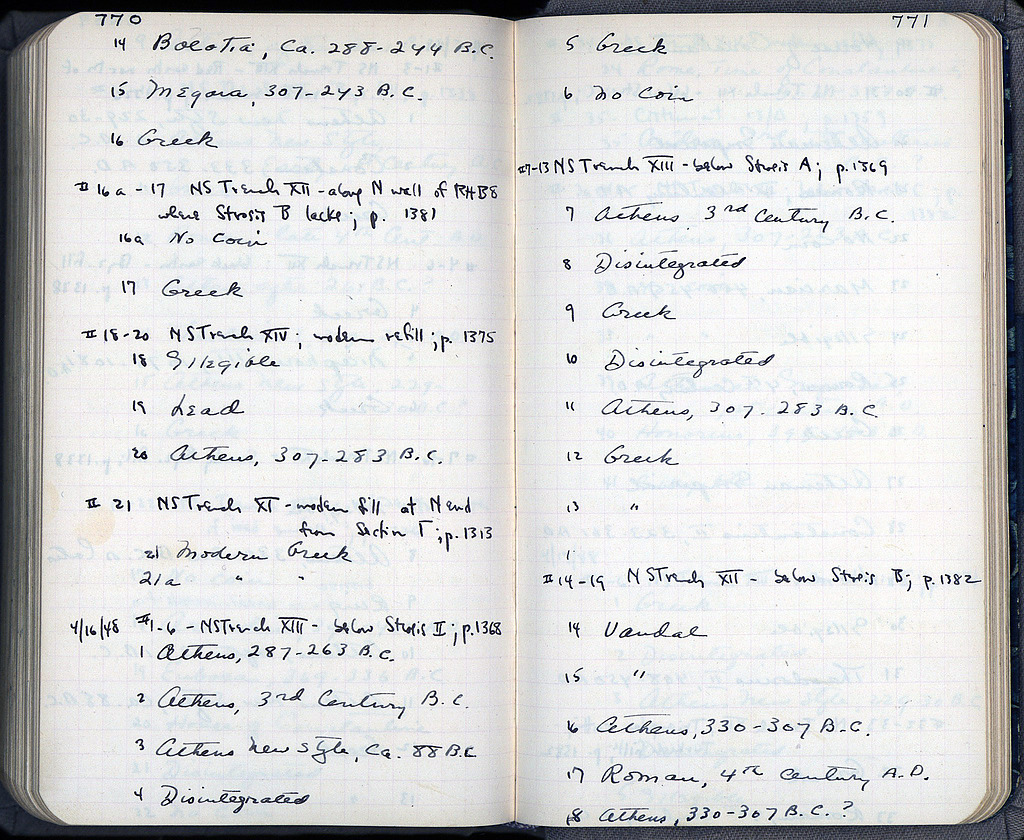 770
14 Boeotia, Ca. 288-244 B.C.
15 Megara, 307-243 B.C.
16 Greek
# 16a - 17 NS Trench XII - along N wall of RHB8
where Strosis B lacks; p. 1381
16a No Coin
17 Greek
# 18-20 NS Trench XIV; modern refill; p. 1375
18 Illegible
19 Lead
20 Athens, 307-283 B.C.
# 21 NS Trench XI - modern fill at N end
from Section T; p. 1313
21 Modern Greek
21a " "
4/16/48 #1-6 - NS Trench XIII - below Strosis II; p. 1368
1 Athens, 287-263 B.C.
2 Athens, 3rd Century B.C.
3 Athens new style, Ca. 88 B.C
4 Disintegrated
771
5 Greek
6 No Coin
#7-13 NS Trench XIII - below Strosis A; p. 1369
7 Athens 3rd Century B.C.
8 Disintegrated
9 Greek
10 Disintegrated
11 Athens, 307-283 B.C.
12 Greek
13 "
# 14-19 NS Trench XII - below Strosis B; p. 1382
14 Vandal
15 "
16 Athens, 330-307 B.C.
17 Roman, 4th Century A.D.
18 Athens, 330-307 B.C. ?